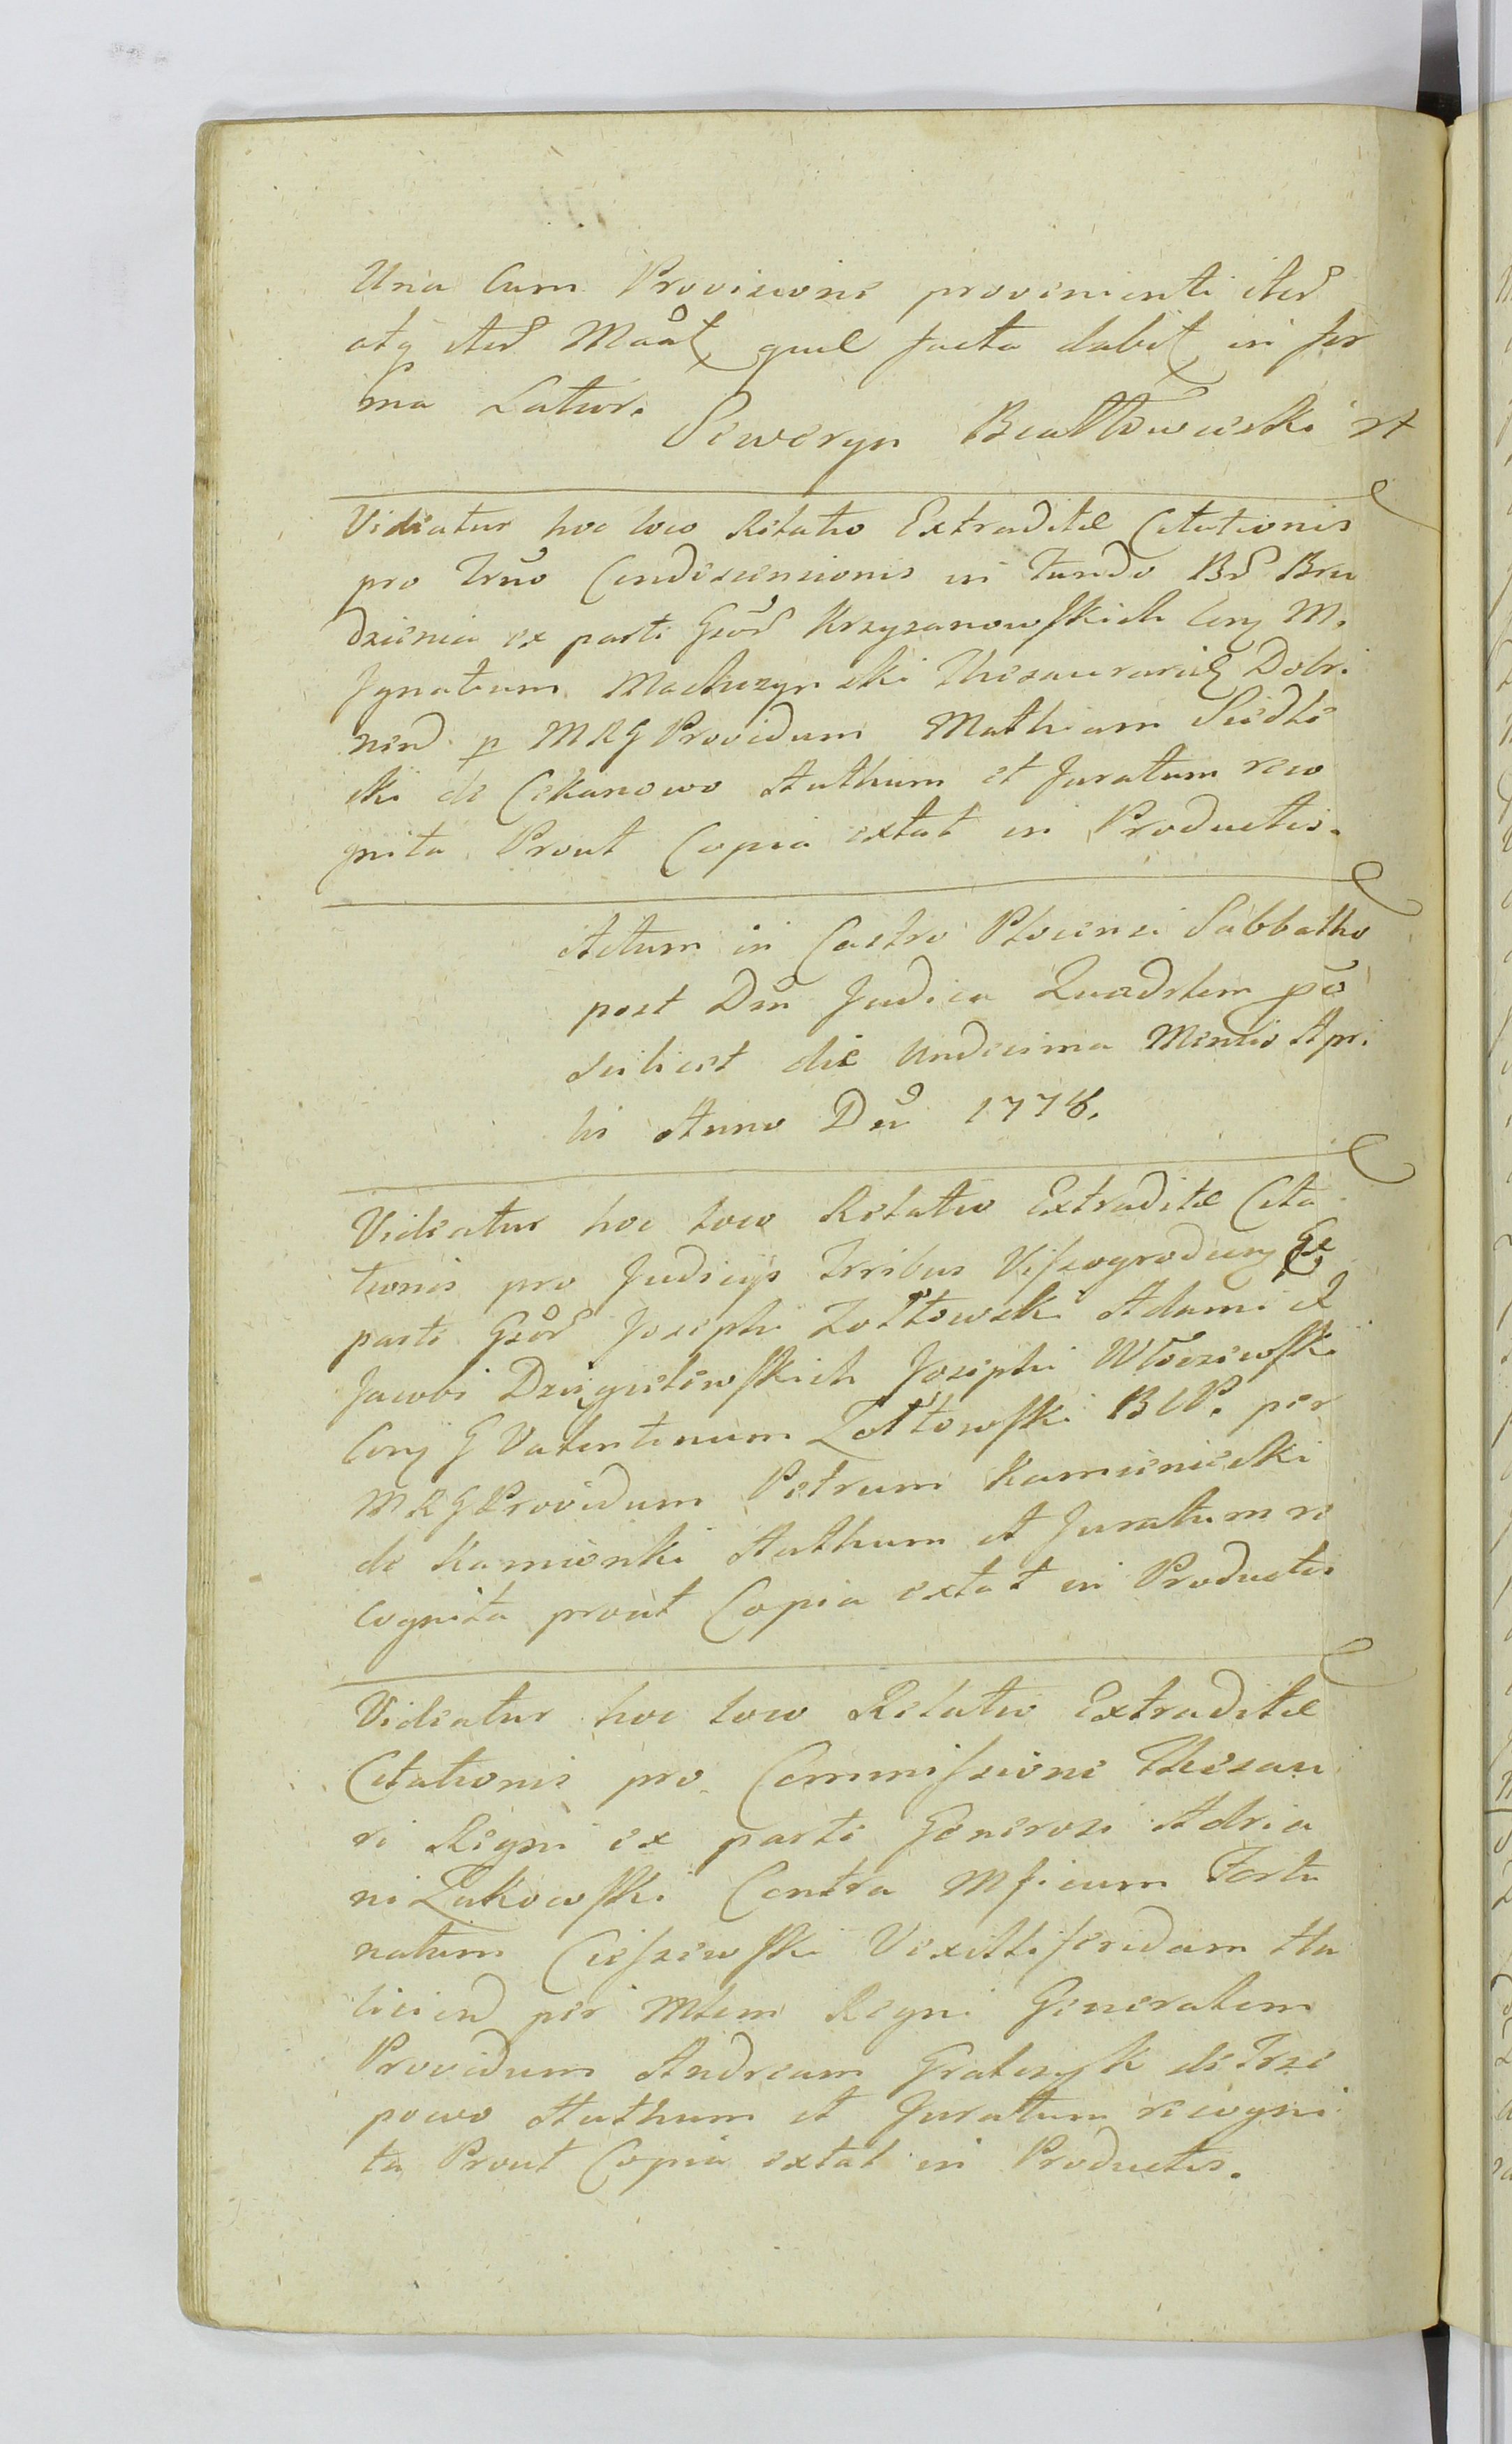 Una Cum Provisione provenienti
atq Maāt quæ facta dabit in for
ma Latur.
Seweryn
Videatur hoc loco Relatio Extraditæ Citationis
pro Trno Condescensionis in Fundo Bru
dzienia ex parte Gsor Krzyzanowskich Con M.
Ignatium Machczynski Thesaurarid Dobri
nend p MRG Providum Mathiam Siedle
cki de Cekanowo Authum et Juratum reco
gnita Prout Copia extat in Productis.
Actum in Castro Plocensi Sabbatho
post Dm Judica Quadrlem po
scilicet die Undecima Mensis Apri
lis Anno Dni 1778.
Videatur hoc loco Relatio Extraditæ Cita
tionis pro Judicijs Trribus Viszogrodien Ex
parte Gsor Josephi Zołtowski Adami et
Jacobi Dziegielewskich Josephi
Con G Valentinum Zołtowski BCP. per
MRG Providum Petrum Kamieniecki
de Kamionki Authum et Juratum re
cognita prout Copia extat in Productis
Videatur hoc loco Relatio Extraditæ
Citationis pro Commissione Thesau
ri Regni ex parte Generosi Adria
ni Żukowski Contra Mficum Fortu
natum Cieszewski Vexilliferidam Ha
licien per Mlem Regni Generalem
Providum Andream Gralczyk de Trze
powo Authum et Juratum recogni
ta Prout Copia extat in Productis.